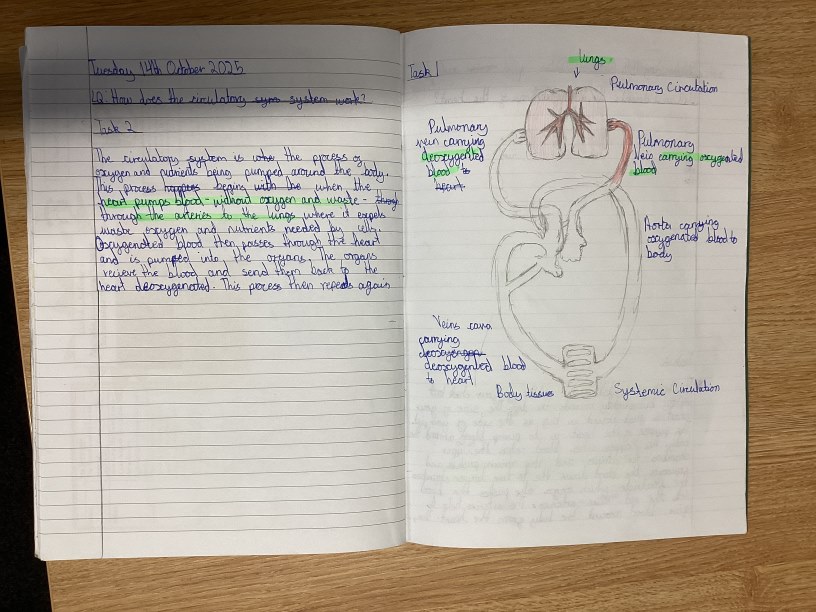 Tuesday 14th October 2025
LQ: How does the circulatory sym system work?
Task 2
The circulatory system is whe the process of
oxygen and nutrients being pumped around the body.
This process happens begins with the when the
heart pumps blood - without oxygen and waste - throug
through the arteries to the lungs where it expels
waste oxygen and nutrients needed by cells.
Oxygenated blood then passes through the heart
and is pumped into the organs. The organs
recieve the blood and send them back to the
heart deoxygenated. This process then repeats again
Task 1
lungs
Pulmonary Circulation
Pulmonary
vein carrying
deoxygented
blood to
heart
Pulmonary
vein carrying oxygented
blood
Aorta carrying
oxygenated blood to
body
Veins cava
carrying
deoxygented blood
to heart
Body tissues
Systemic Circulation